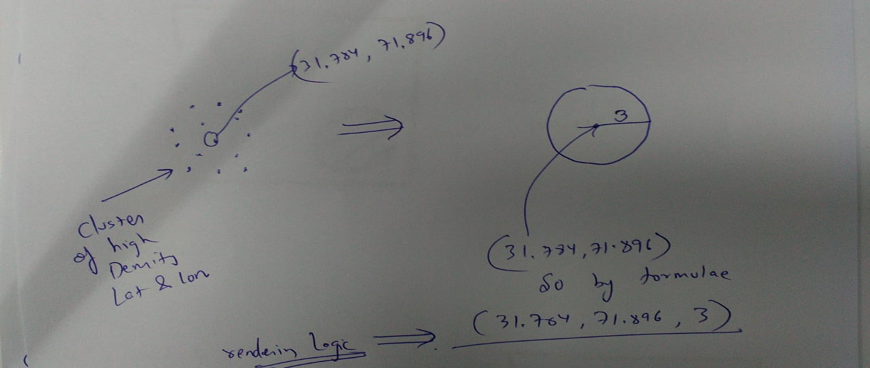 (31.784, 71.896)
3
Cluster
of high
Density
Lat & lon
(31.784, 71.896)
So by formulae
(31.784, 71.896, 3)
rendering Logic